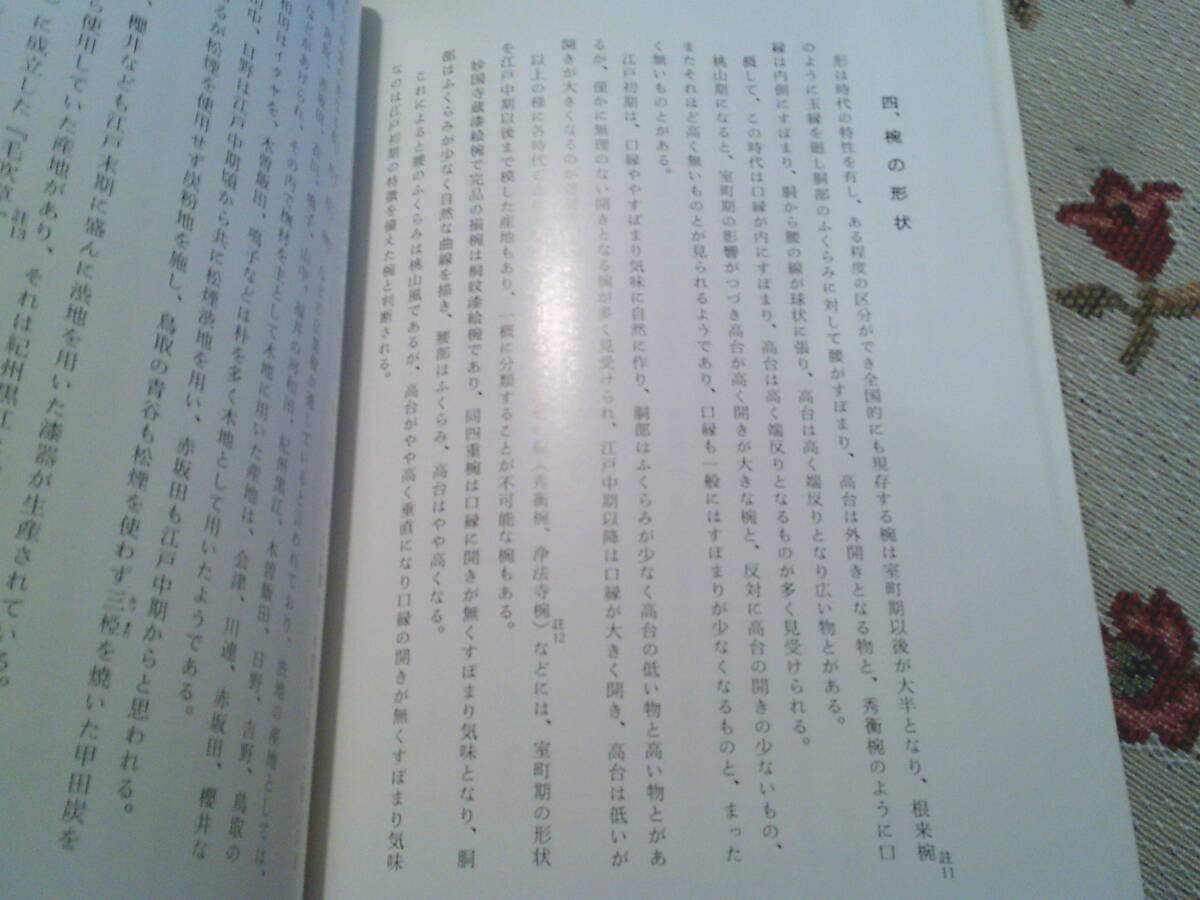 四、椀の形状
形は時代の特性を有し、ある程度の区分ができ全国的にも現存する椀は室町期以後が大半となり、根来椀
註11
のように玉縁を廻し胴部のふくらみに対して腰がすぼまり、高台は外開きとなる物と、秀衡椀のように口
縁は内側にすぼまり、胴から腰の線が球状に張り、高台は高く端反りとなり広い物とがある。
概して、この時代は口縁が内にすぼまり、高台は高く端反りとなるものが多く見受けられる。
桃山期になると、室町期の影響がつづき高台が高く開きが大きな椀と、反対に高台の開きの少ないもの、
またそれほど高く無いものとが見られるようであり、口縁も一般にはすぼまりが少なくなるものと、まった
く無いものとがある。
江戸初期は、口縁ややすぼまり気味に自然に作り、胴部はふくらみが少なく高台の低い物と高い物とがあ
るが、僅かに無理のない開きとなる椀が多く見受けられ、江戸中期以降は口縁が大きく開き、高台は低いが
開きが大きくなるのが
以上の様に各時代ごと（秀衡椀、浄法寺椀）などには、室町期の形状
註12
を江戸中期以後まで模した産地もあり、一概に分類することが不可能な椀もある。
妙国寺蔵漆絵椀で完品の揃椀は桐紋漆絵椀であり、同四重椀は口縁に開きが無くすぼまり気味となり、胴
部はふくらみが少なく自然な曲線を描き、腰部はふくらみ、高台はやや高くなる。
これによると腰のふくらみは桃山風であるが、高台がやや高く垂直になり口縁の開きが無くすぼまり気味
なのは江戸初期の特徴を備えた椀と判断される。
などがあげられ、その内で橅材を主として木地に用いた産地は、会津、川連、赤坂田、櫻井な
田中、日野は江戸中期頃から共に松煙渋地を用い、赤坂田も江戸中期からと思われる。
るが松煙を使用せず炭粉地を施し、鳥取の青谷も松煙を使わず三椏を焼いた甲田炭を
みつまた
、櫻井なども江戸末期に盛んに渋地を用いた漆器が生産されている。
ら使用していた産地があり、それは紀州黒江
に成立した『毛吹草』
註13